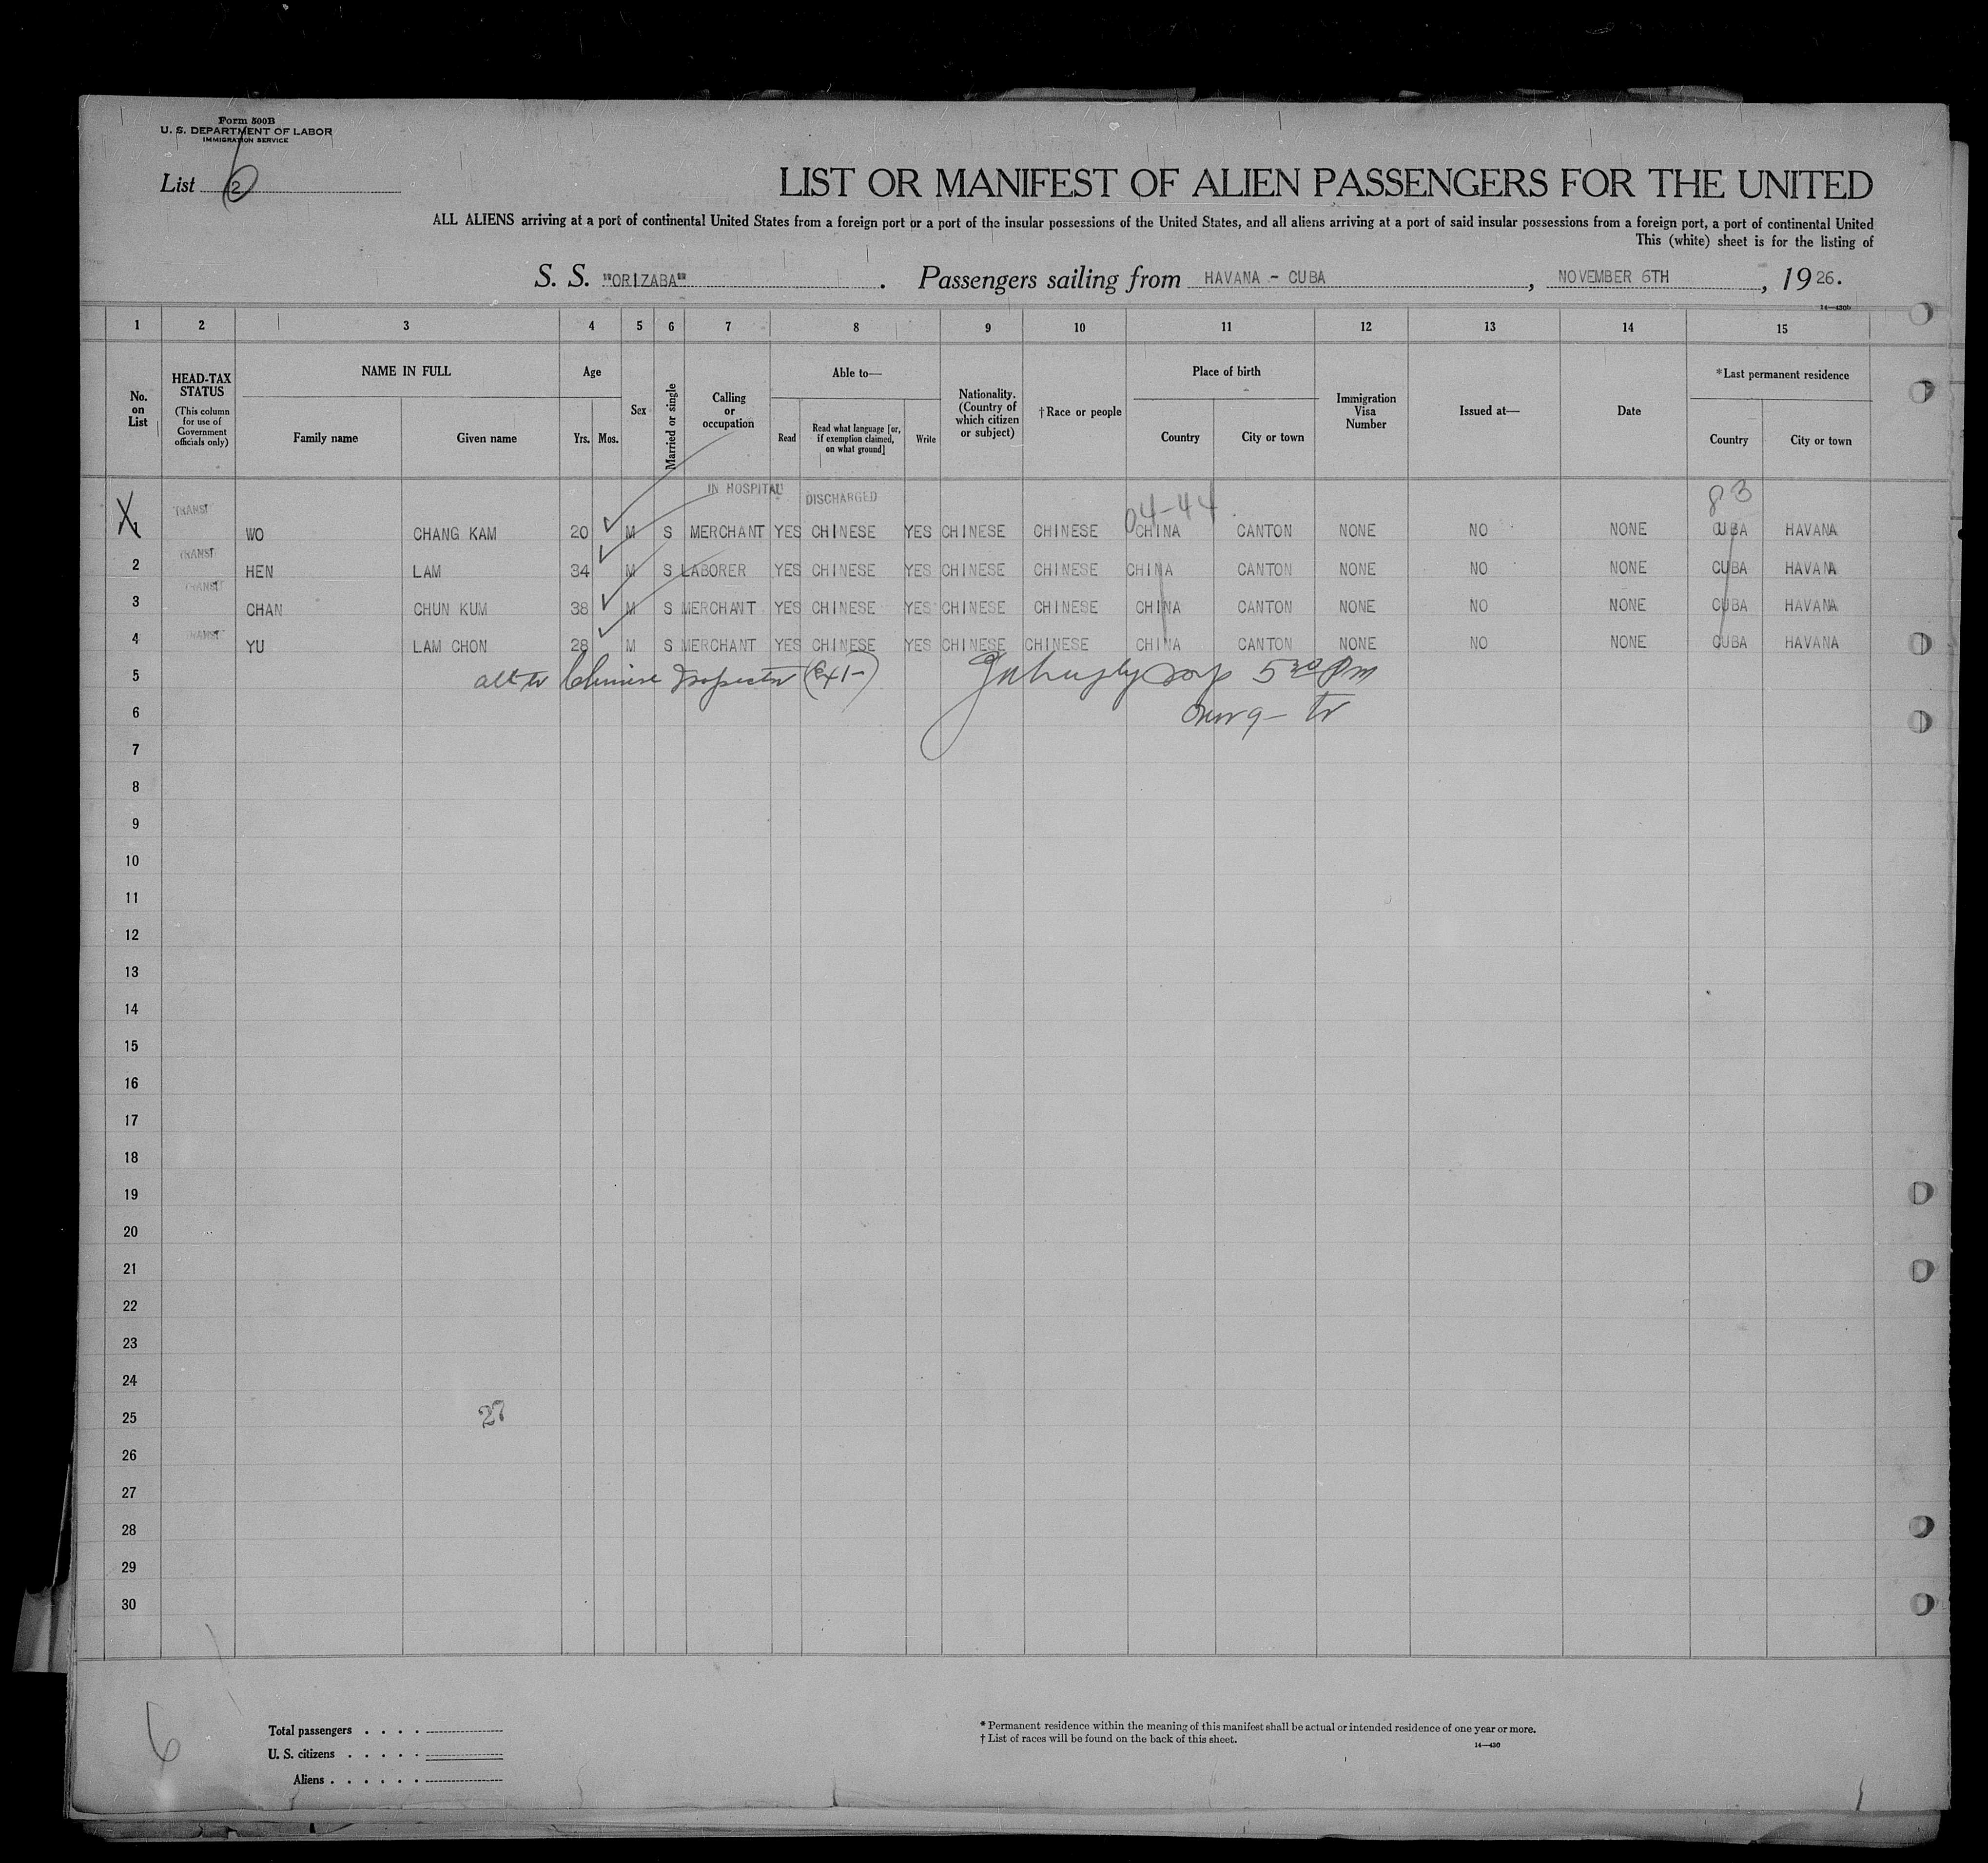 Form 500B
U. S. DEPARTMENT OF LABOR
IMMIGRATION SERVICE
List 2 6
LIST OR MANIFEST OF ALIEN PASSENGERS FOR THE UNITED
ALL ALIENS arriving at a port of continental United States from a foreign port or a port of the insular possessions of the United States, and all aliens arriving at a port of said insular possessions from a foreign port, a port of continental United
This (white) sheet is for the listing of
S. S. "ORIZABA" . Passengers sailing from HAVANA - CUBA , NOVEMBER 6TH , 19 26.
14—430b
1 2 3 4 5 6 7 8 9 10 11 12 13 14 15
No. on List
HEAD-TAX STATUS (This column for use of Government officials only)
NAME IN FULL
Family name Given name
Age
Yrs. Mos.
Sex
Married or single
Calling or occupation
Able to—
Read
Read what language [or, if exemption claimed, on what ground]
Write
Nationality. (Country of which citizen or subject)
†Race or people
Place of birth
Country City or town
Immigration Visa Number
Issued at—
Date
*Last permanent residence
Country City or town
IN HOSPITAL DISCHARGED 04-44 83
X 1 TRANSIT WO CHANG KAM 20 M S MERCHANT YES CHINESE YES CHINESE CHINESE CHINA CANTON NONE NO NONE CUBA HAVANA
2 TRANSIT HEN LAM 34 M S LABORER YES CHINESE YES CHINESE CHINESE CHINA CANTON NONE NO NONE CUBA HAVANA
3 TRANSIT CHAN CHUN KUM 38 M S MERCHANT YES CHINESE YES CHINESE CHINESE CHINA CANTON NONE NO NONE CUBA HAVANA
4 TRANSIT YU LAM CHON 28 M S MERCHANT YES CHINESE YES CHINESE CHINESE CHINA CANTON NONE NO NONE CUBA HAVANA
5 all to Chinese Inspector 5 30 Pm
6
7
8
9
10
11
12
13
14
15
16
17
18
19
20
21
22
23
24
25 27
26
27
28
29
30
6
Total passengers . . . .
U. S. citizens . . . . .
Aliens . . . . . .
* Permanent residence within the meaning of this manifest shall be actual or intended residence of one year or more.
† List of races will be found on the back of this sheet.
14—430